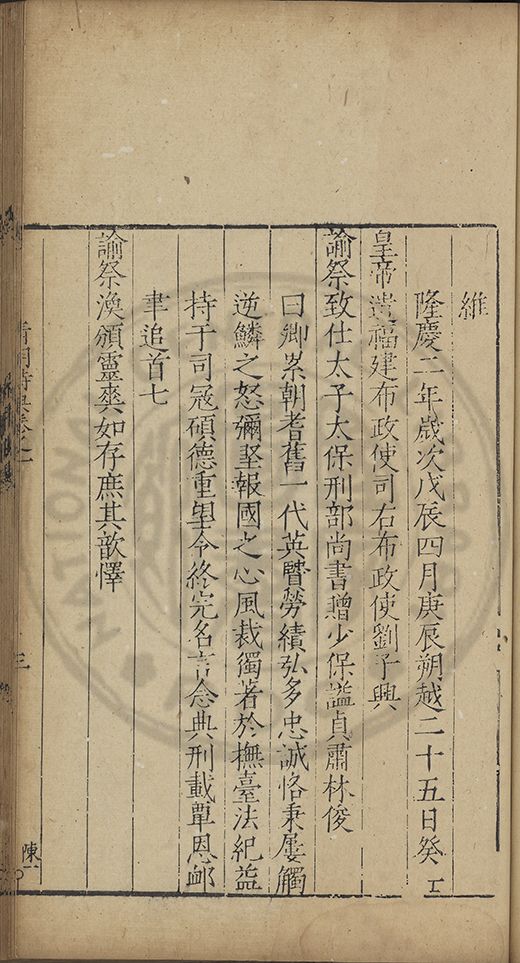 維
隆慶二年歲次戊辰四月庚辰朔越二十五日癸
皇帝遣福建布政使司右布政使劉子興
諭祭致仕太子太保刑部尚書贈少保謚貞肅林俊
曰卿累朝耆舊一代英賢勞績弘多忠誠恪秉屢觸
逆鱗之怒彌堅報國之心風裁獨著於撫臺法紀益
持于司寇碩德重望令終完名言念典刑載覃恩䘏
聿追首七
諭祭渙頒靈爽如存庶其歆懌
三
陳一